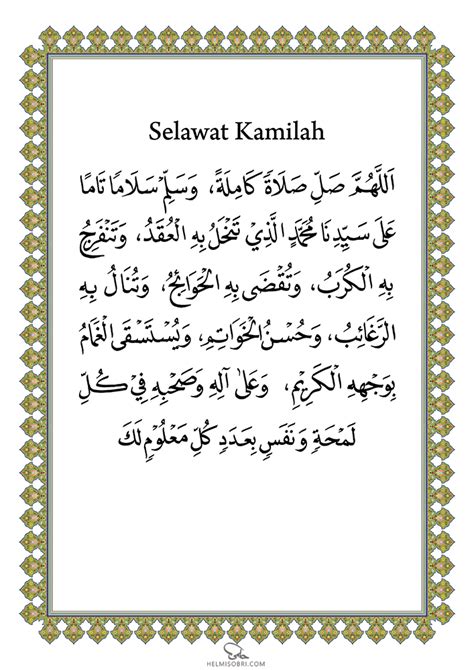 Selawat Kamilah
اَللّٰهُمَّ صَلِّ صَلَاةً كَامِلَةً، وَسَلِّمْ سَلَامًا تَامًّا
عَلَى سَيِّدِنَا مُحَمَّدٍ الَّذِيْ تَنْحَلُ بِهِ الْعُقَدُ، وَتَنْفَرِجُ
بِهِ الْكُرَبُ، وَتُقْضَى بِهِ الْحَوَائِجُ، وَتُنَالُ بِهِ
الرَّغَائِبُ، وَحُسْنُ الْخَوَاتِمِ، وَيُسْتَسْقَى الْغَمَامُ
بِوَجْهِهِ الْكَرِيْمِ، وَعَلَى آلِهِ وَصَحْبِهِ فِيْ كُلِّ
لَمْحَةٍ وَنَفَسٍ بِعَدَدِ كُلِّ مَعْلُوْمٍ لَكَ
HELMISOBRI.COM